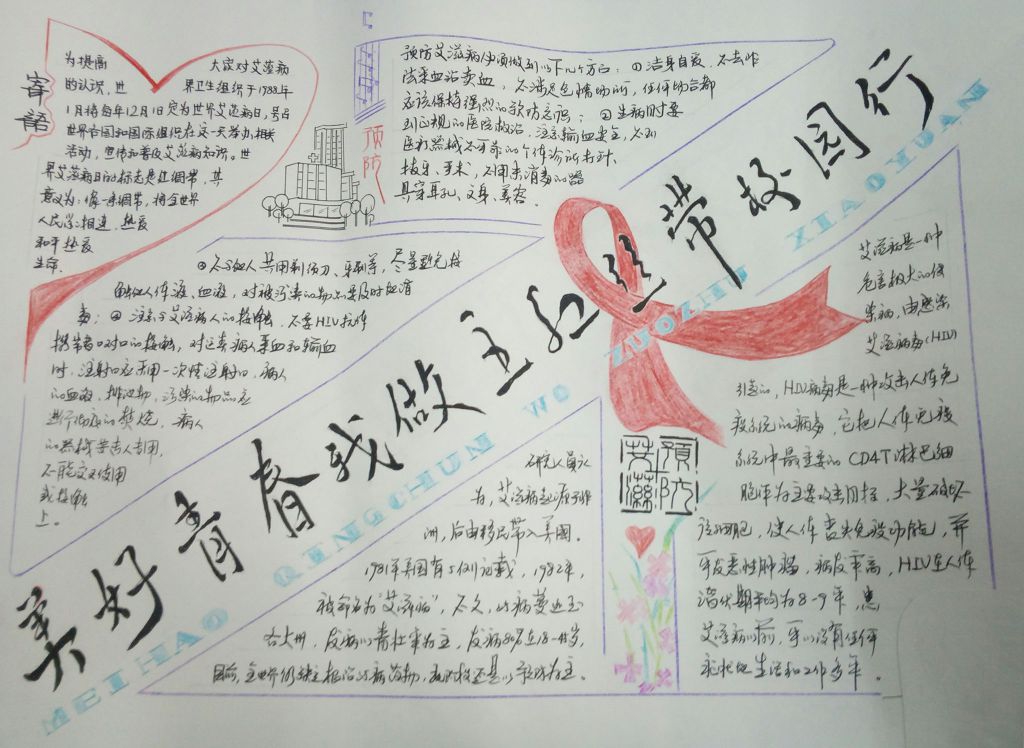 寄语
为提高 大家对艾滋病
的认识，世 界卫生组织于1988年
1月将每年12月1日定为世界艾滋病日，号召
世界各国和国际组织在这一天举办相关
活动，宣传和普及艾滋病知识。世
界艾滋病日的标志是红绸带，其
意义为：像一条绸带，将全世界
人民紧相连，热爱
和平热爱
生命.
预防
预防艾滋病必须做到以下几个方面：①洁身自爱，不去非
法采血站卖血，不涉足色情场所，任何场合都
应该保持强烈的预防意识；②生病时要
到正规的医院救治，注意输血安全，不到
医疗器械不可靠的个体诊所打针、
拔牙、手术，不用未消毒的器
具穿耳孔、文身、美容.
③不与他人共用剃须刀、牙刷等，尽量避免接
触他人体液、血液，对被污染的物品要及时消
毒；④注意与艾滋病人的接触，不要HIV抗体
携带者口对口的接触，
时，注射时应采用一次性注射，病人
的血液、排泄物、污染的物品应
进行彻底的焚烧，病人
的器械等专人专用，
不能交叉使用
或接触
上。
美好青春我做主红丝带校园行
MEI HAO QINGCHUN WO ZUOZHU XIAOYUAN
艾滋病是一种
危害极大的传
染病，由感染
艾滋病毒(HIV)
引起的，HIV病毒是一种攻击人体免
疫系统的病毒，它把人体免疫
系统中最重要的CD4T淋巴细
胞作为主要攻击目标，大量破坏
该细胞，使人体丧失免疫功能，并
可发恶性肿瘤，病发率高，HIV在人体
潜伏期平均为8-9年，患
艾滋病以前，可以没有任何
症状地生活和工作多年。
预防
艾滋
研究人员认
为，艾滋病起源于非
洲，后由移民带入美国。
1981年美国有5例记载，1982年，
被命名为"艾滋病"，不久，此病蔓延至
各大洲，发病以青壮年为主，发病80%在18-45岁，
目前，全世界仍缺乏根治此病药物，现阶段还是以预防为主.